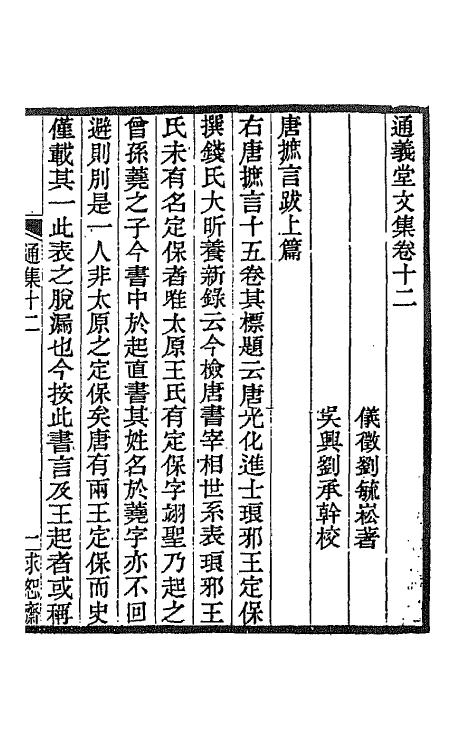 通義堂文集卷十二
儀徵劉毓崧著
吳興劉承幹校
唐摭言跋上篇
右唐摭言十五卷其標題云唐光化進士琅邪王定保
撰錢氏大昕養新錄云今檢唐書宰相世系表琅邪王
氏未有名定保者雅太原王氏有定保字翊聖乃起之
曾孫蕘之子今書中於起直書其姓名於蕘字亦不回
避則別是一人非太原之定保矣唐有兩王定保而史
僅載其一此表之脫漏也今按此書言及王起者或稱
通集十二
一求恕齋